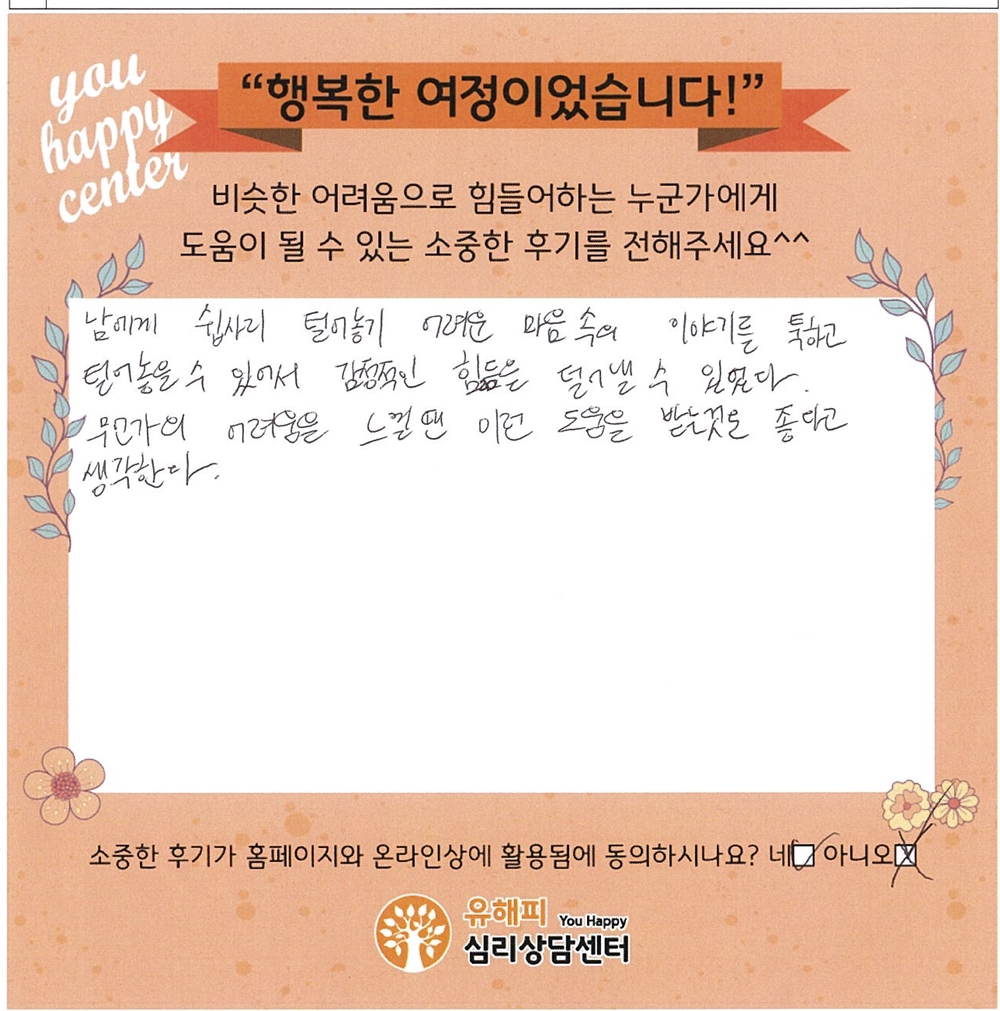 you
happy
center
“행복한 여정이었습니다!”
비슷한 어려움으로 힘들어하는 누군가에게
도움이 될 수 있는 소중한 후기를 전해주세요^^
남에게 쉽사리 털어놓기 어려운 마음 속의 이야기를 툭하고
털어놓을 수 있어서 감정적인 힘듦을 덜어낼 수 있었다.
무언가의 어려움을 느낄 땐 이런 도움을 받는것도 좋다고
생각한다.
소중한 후기가 홈페이지와 온라인상에 활용됨에 동의하시나요? 네 아니오
유해피 You Happy
심리상담센터